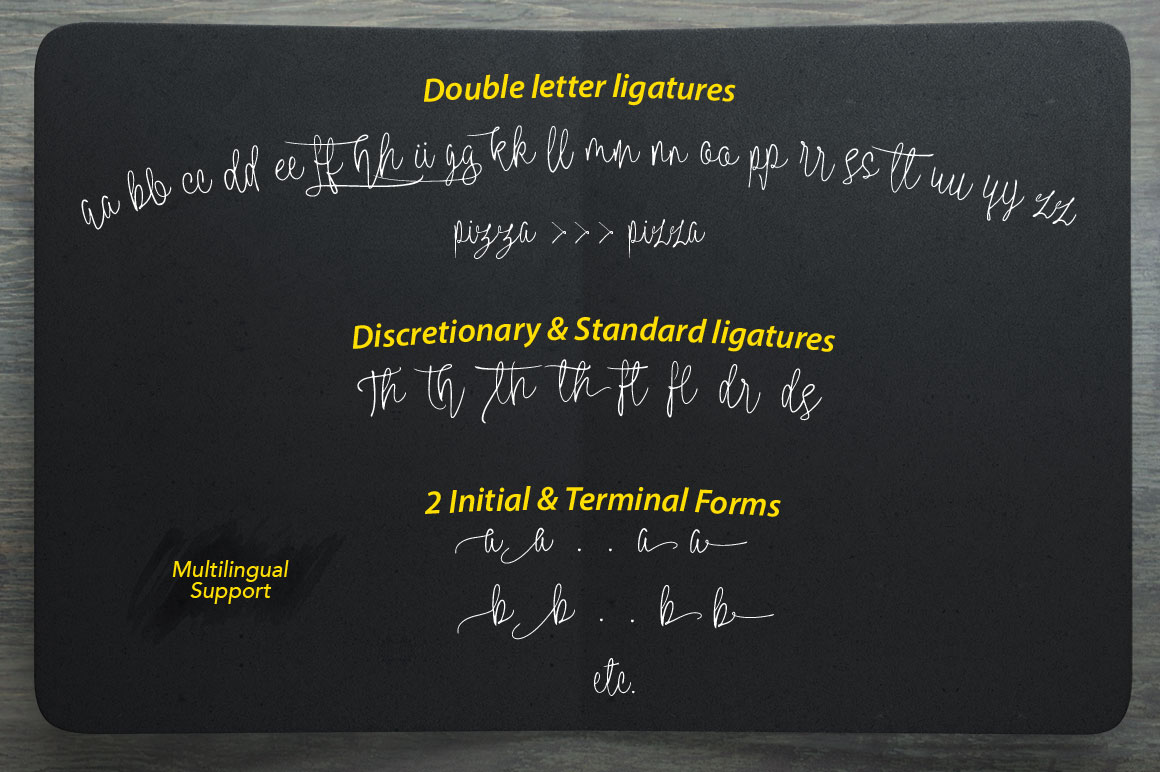 Double letter ligatures
aa bb cc dd ee ff hh ii gg kk ll mm nn oo pp rr ss tt uu yy zz
pizza >>> pizza
Discretionary & Standard ligatures
Th Th th th ft fl dr ds
2 Initial & Terminal Forms
a a . . a a
Multilingual
Support
b b . . b b
etc.